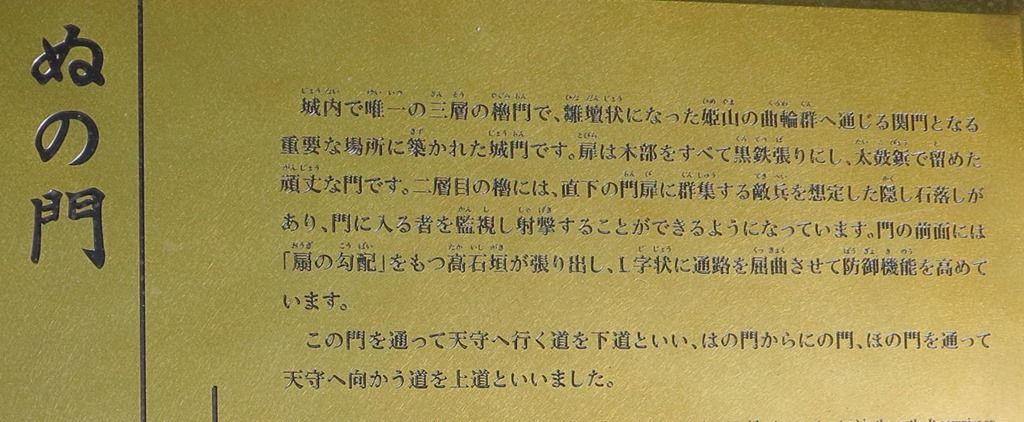 ぬの門
城内で唯一の三層の櫓門で、雛壇状になった姫山の曲輪群へ通じる関門となる
重要な場所に築かれた城門です。扉は木部をすべて黒鉄張りにし、太鼓鋲で留めた
頑丈な門です。二層目の櫓には、直下の門扉に群集する敵兵を想定した隠し石落しが
あり、門に入る者を監視し射撃することができるようになっています。門の前面には
「扇の勾配」をもつ高石垣が張り出し、L字状に通路を屈曲させて防御機能を高めて
います。
この門を通って天守へ行く道を下道といい、はの門からにの門、ほの門を通って
天守へ向かう道を上道といいました。